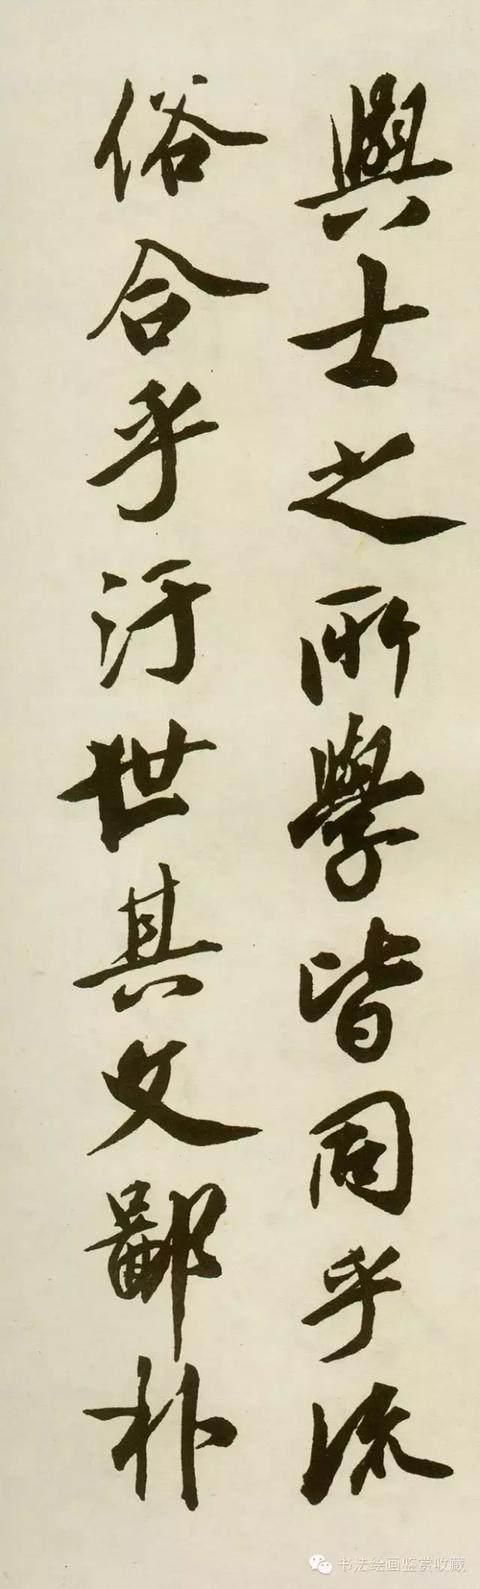 與士之所學皆同乎流
俗合乎汙世其文鄙朴
书法绘画鉴赏收藏